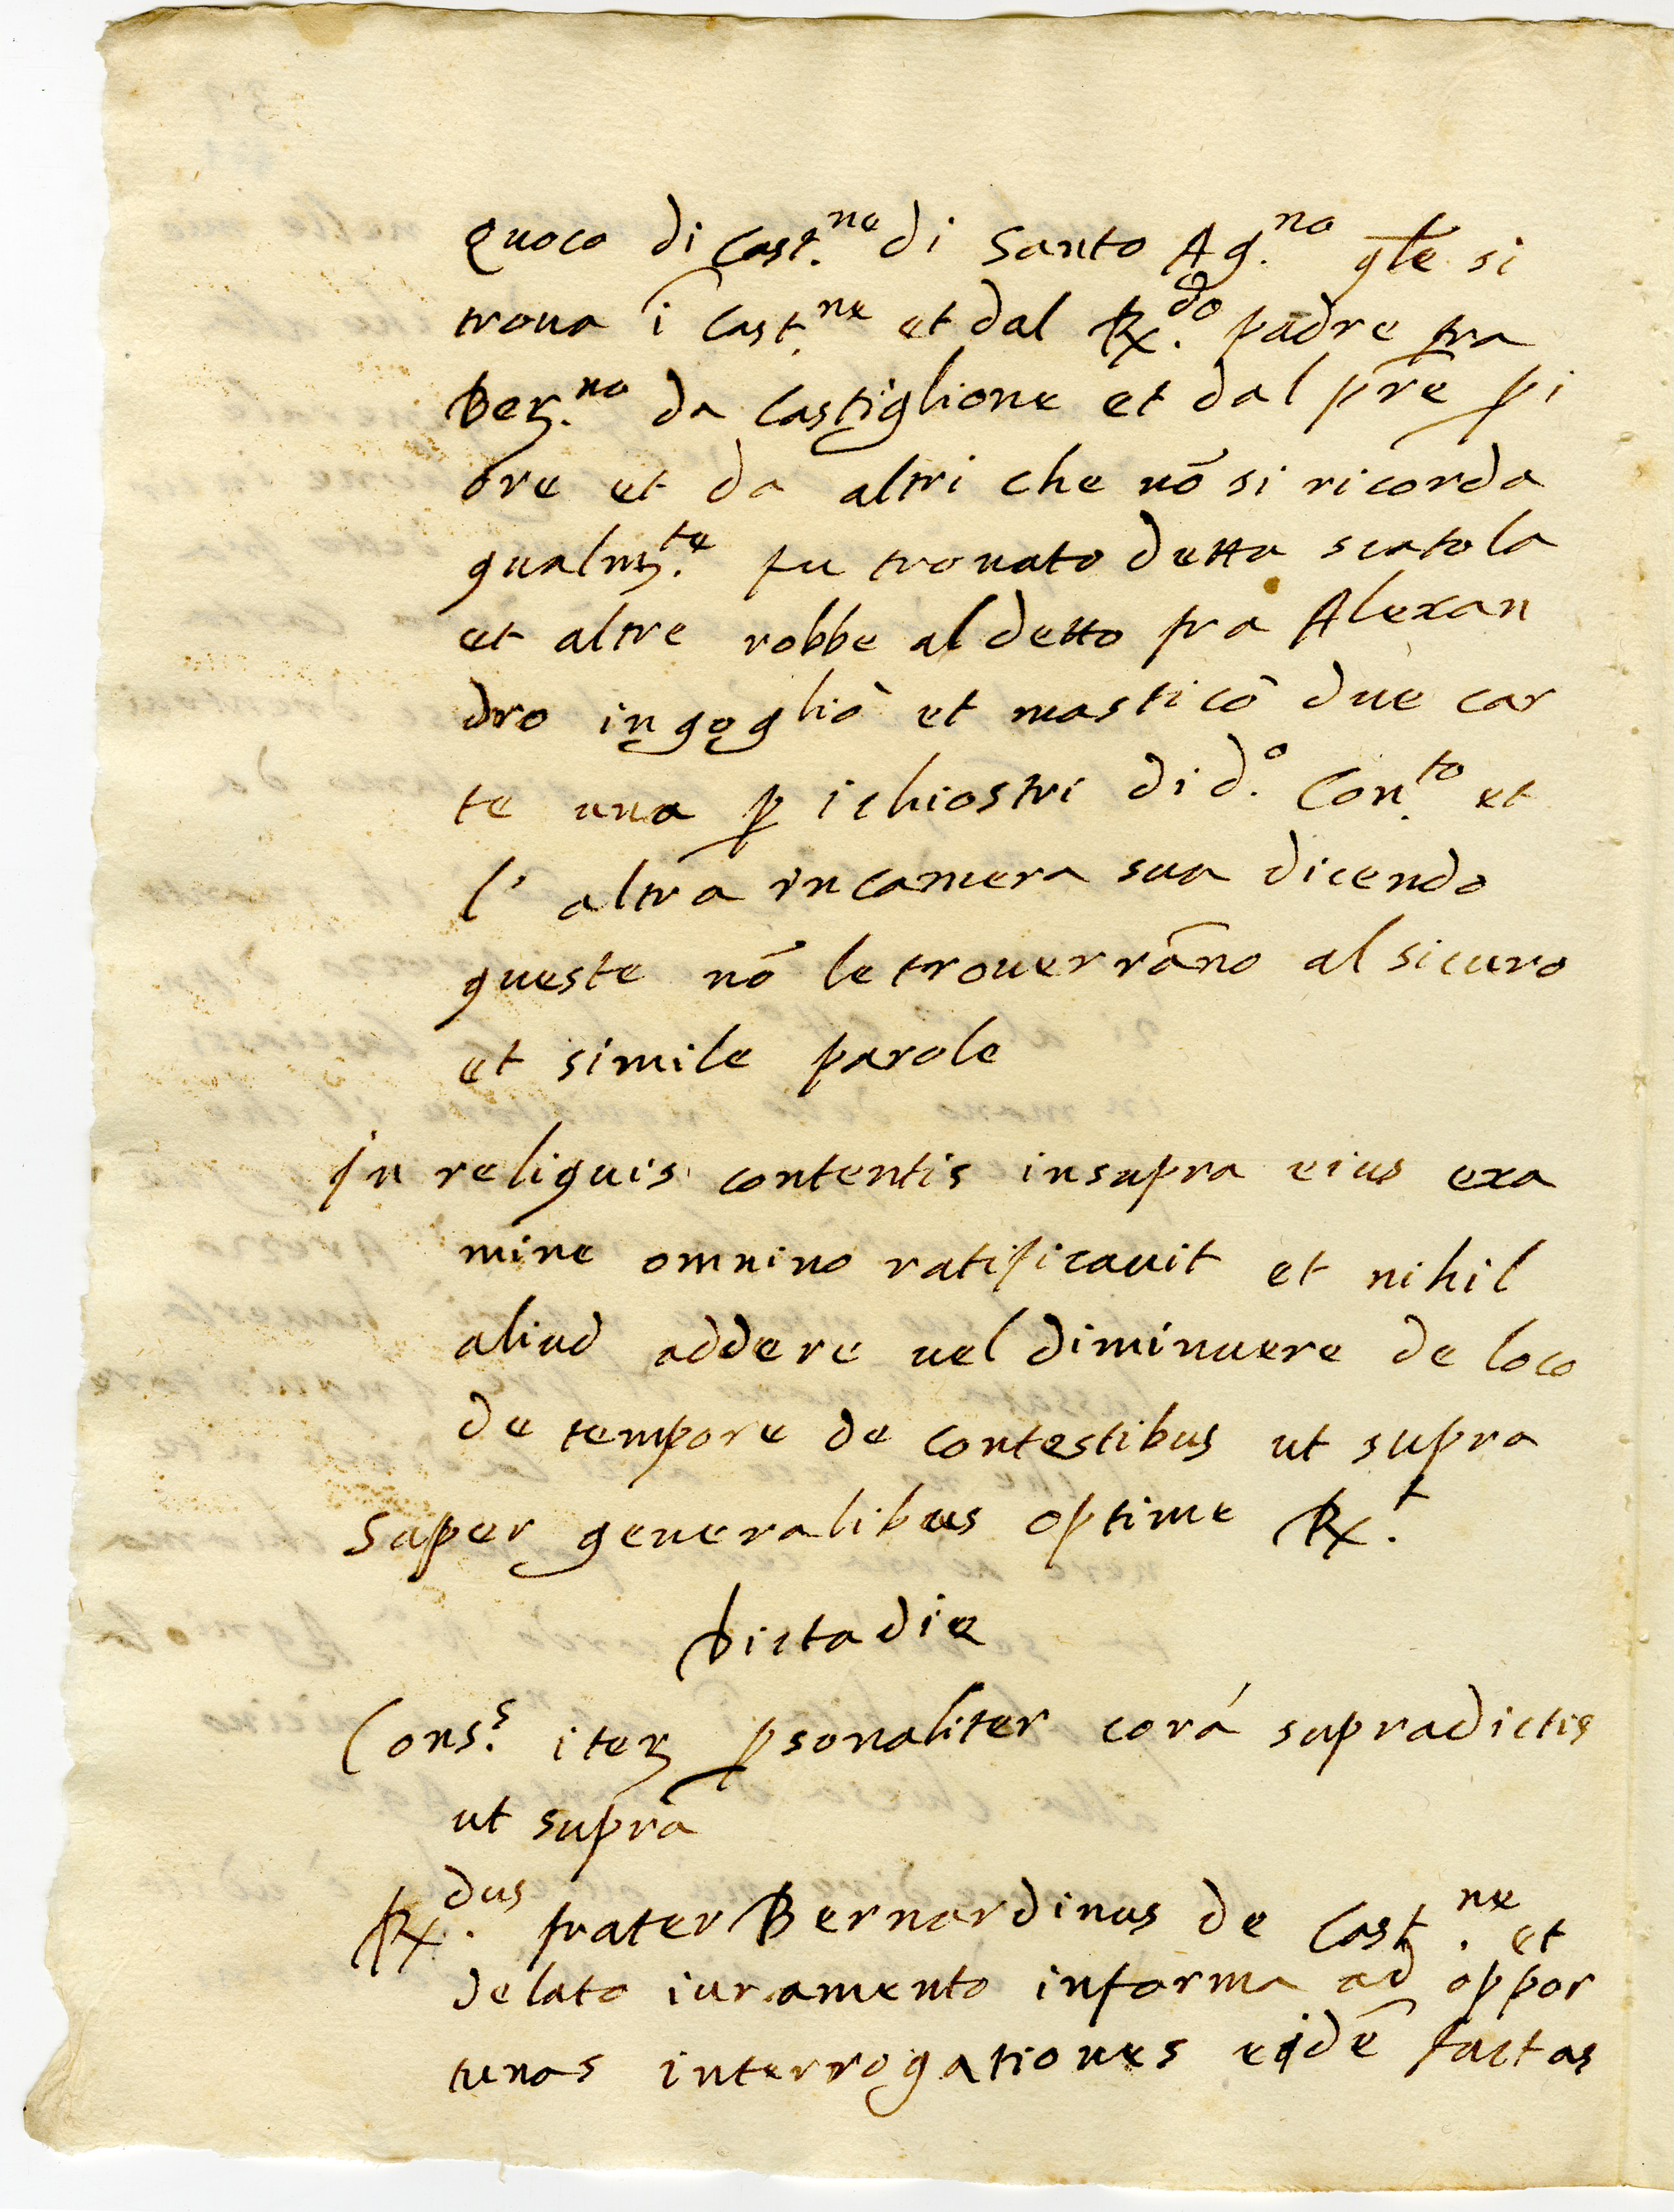 quoco di Cast.ne di Santo Ag.no q̃le si
troua ĩ Cast.ne et dal R.do padre fra
Ber.no da Castiglione et dal prẽ pi
ore et da altri che nõ si ricorda
qualm.te fu trouato detta scatola
et altre robbe al detto fra Alexan
dro ingogliò et masticò due car
te una ꝑ ichiostri di d.o Con.to et
l' altra in camera sua dicendo
queste nõ le trouerrãno al sicuro
et simile parole
In reliquis contentis insupra eius exa
mine omnino ratificauit et nihil
aliud addere uel diminuere de loco
de tempore de contestibus ut supra
super generalibus optime R.t
Dicta die
Cons.s iter ꝑsonaliter corã supradictis
ut supra
R.dus frater Bernardinus de Cast.ne et
delato iuramento in forma ad oppor
tunas interrogationes eidẽ factas